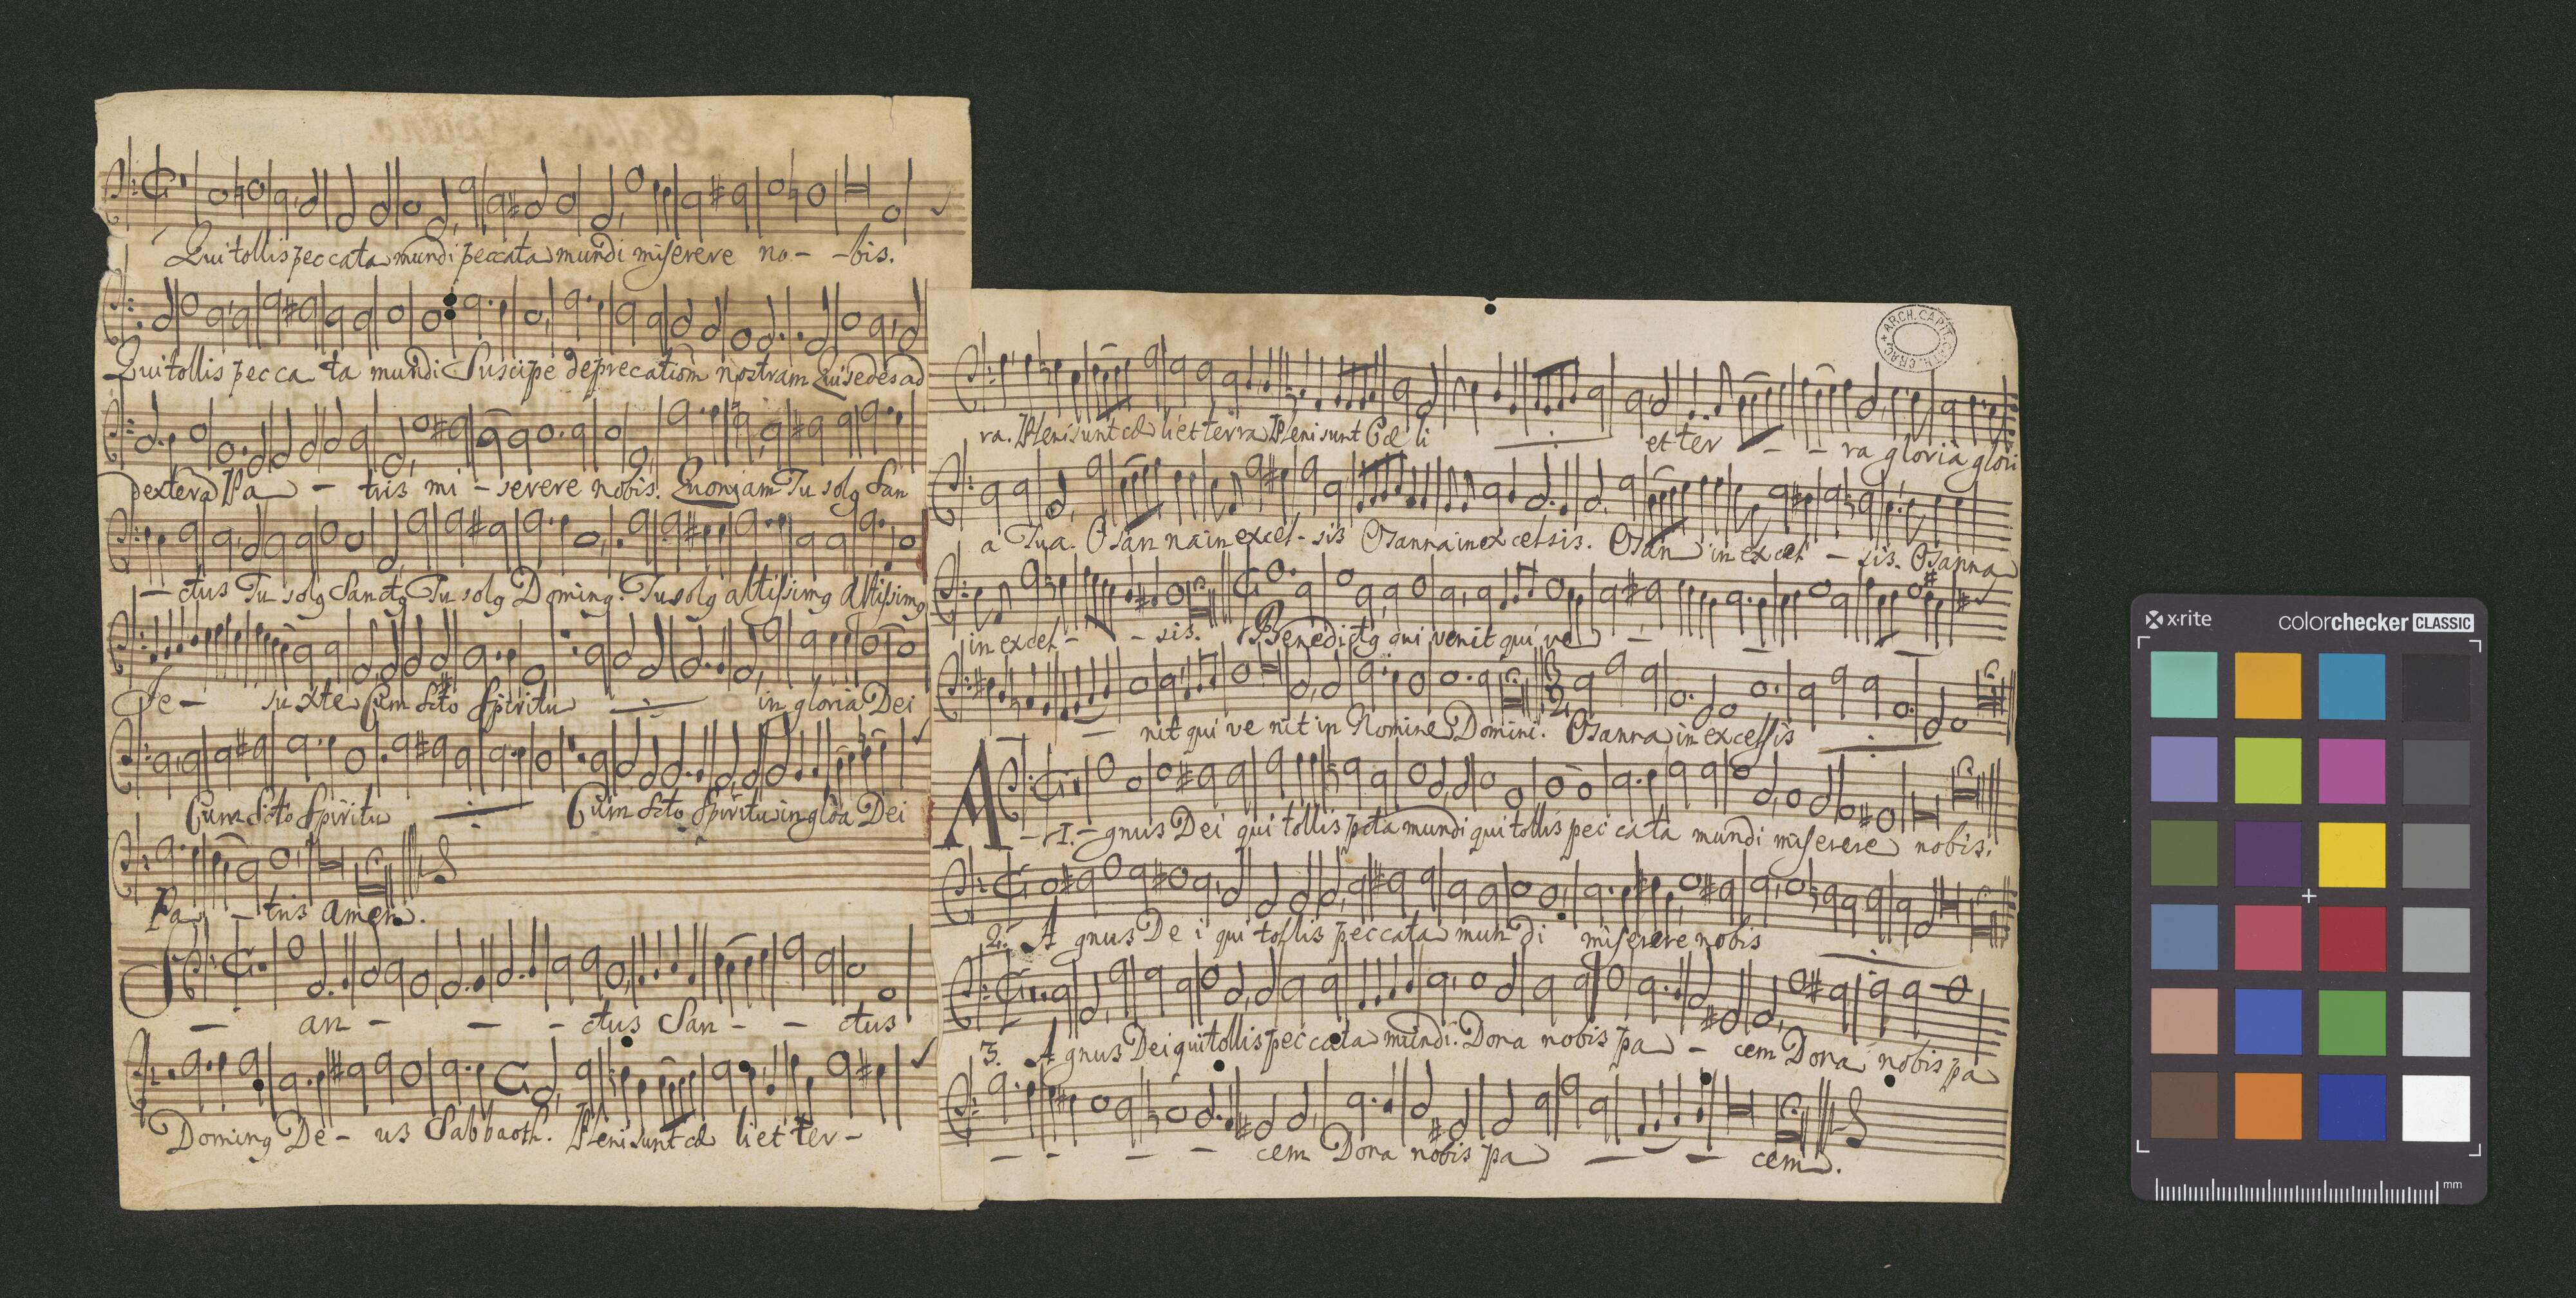 Qui tollis peccata mundi peccata mundi miserere no - - bis.
Qui tollis pecca ta mundi Suscipe deprecationem nostram Qui sedes ad
dextera Pa - tris mi - serere nobis. Quoniam Tu solg San
- ctus Tu solg Sanctg Tu solg Doming. Tu solg altissimg Altissimg
Je - su Xte Cum Scto Spiritu in gloria Dei
Cum Scto Spiritu Cum Scto Spiritu in glõa Dei
Pa - tris Amen.
S - an - - - ctus San - - ctus
Doming De - us Sabbaoth. Pleni sunt cæ li et ter -
ARCH. CAPIT. CATH. CRAC.
ra. Pleni sunt cæ li et terra Pleni sunt Cæ li et ter - - ra gloria glori
a Tua. Osan na in excel - sis Osanna in excelsis. Osan in excel - sis. Osanna
in excel - - sis. Benedictg qui venit qui ve -
nit qui ve nit in Nomine Domini. Osanna in excelsis
A - 1. - gnus Dei qui tollis pcta mundi qui tollis peccata mundi miserere nobis.
2. A gnus De i qui tollis peccata mun di miserere nobis
3. A gnus Dei qui tollis peccata mundi. Dona nobis pa - cem Dona nobis pa
- - - - cem Dona nobis pa - - cem.
x·rite colorchecker CLASSIC
mm